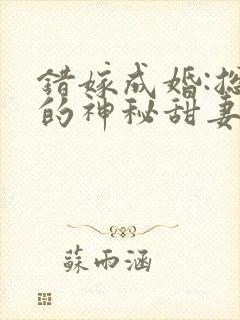 错嫁成婚:总
的神秘甜妻
蘇雨涵